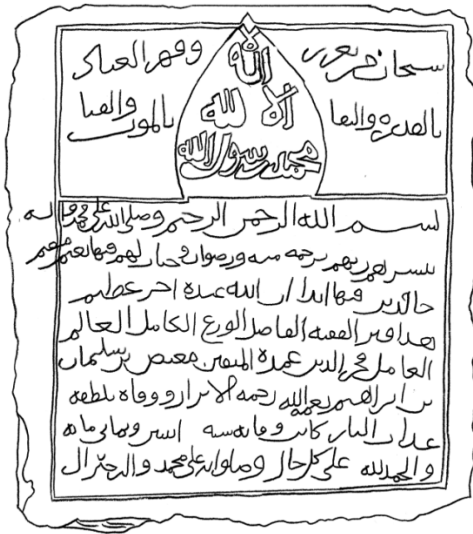 سبحان من تعزز
بالقدرة والبقا
وقهر العباد
بالموت والفنا
لا اله
الا الله
محمد رسول الله
بسم الله الرحمن الرحيم وصلى الله على محمد واله
يبشرهم ربهم برحمة منه ورضوان وجنات لهم فيها نعيم مقيم
خالدين فيها ابدا ان الله عنده اجر عظيم
هذا قبر الفقيه الفاضل الورع الكامل العالم
العامل الدين عمدة المتقين بن سليمان
بن ابراهيم رحمة الابرار ووقاه بلطفه
عذاب النار كانت وفاته سنة وثماني مائة
والحمد لله على كل حال وصلواته على محمد واله خير ال